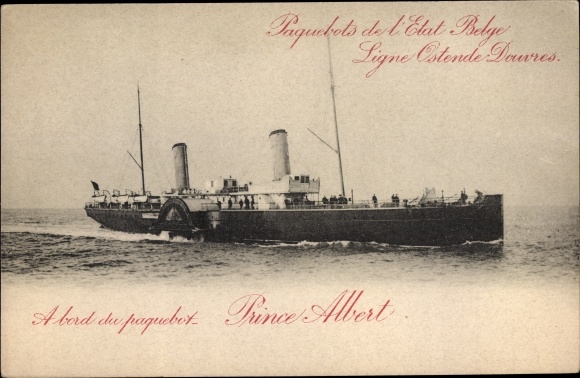 Paquebots de l'Etat Belge
Ligne Ostende Douvres.
A bord du paquebot Prince Albert.